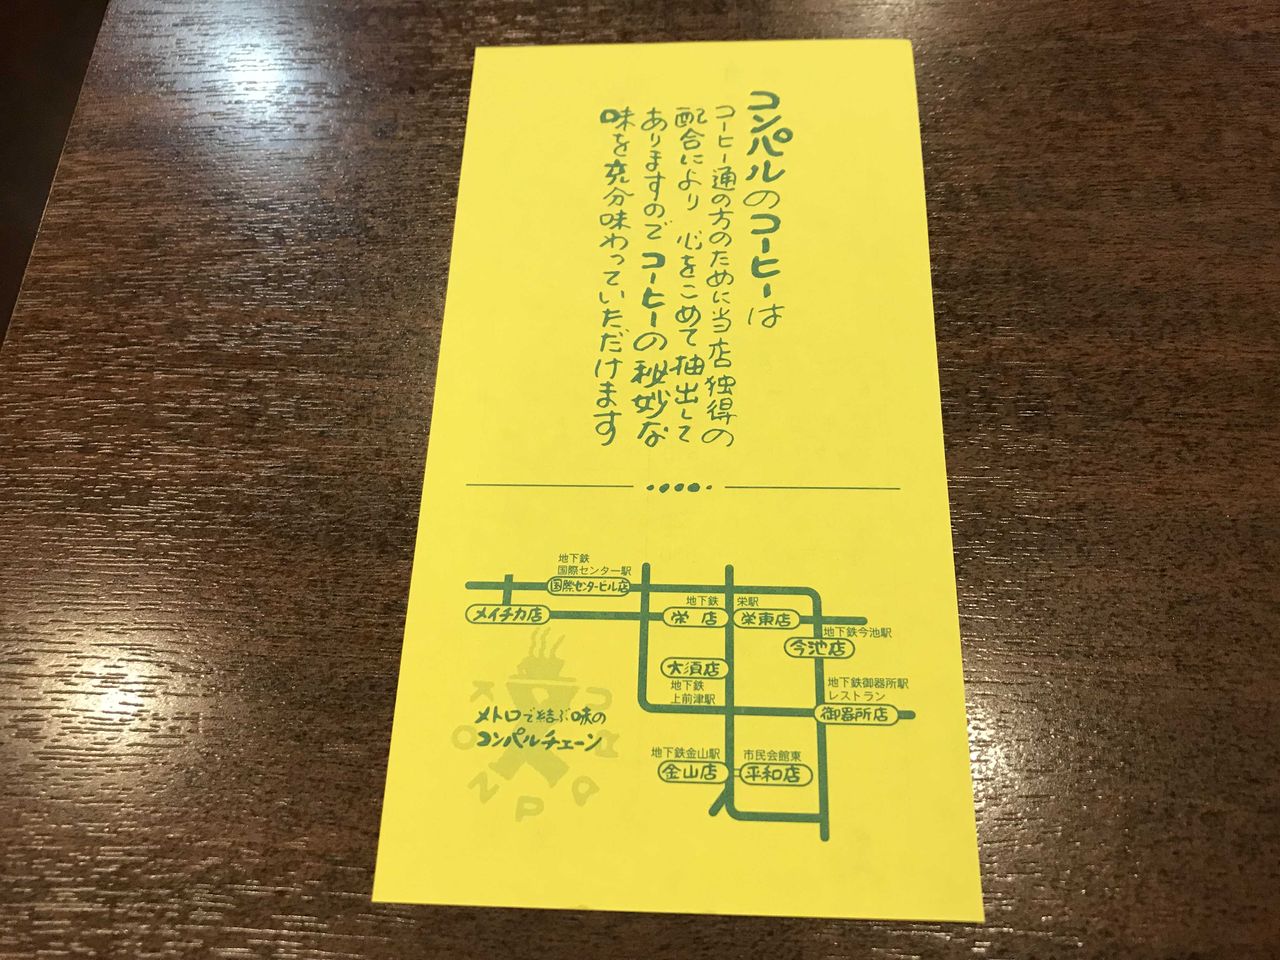 コンパルのコーヒーは
コーヒー通の方のために当店独得の
配合により 心をこめて抽出して
ありますので コーヒーの秘妙な
味を充分味わっていただけます
地下鉄
国際センター駅
国際センタービル店
メイチカ店
地下鉄 栄駅
栄店
栄東店
地下鉄今池駅
今池店
大須店
地下鉄
上前津駅
地下鉄御器所駅
レストラン
御器所店
メトロで結ぶ味の
コンパルチェーン
地下鉄金山駅
金山店
市民会館東
平和店